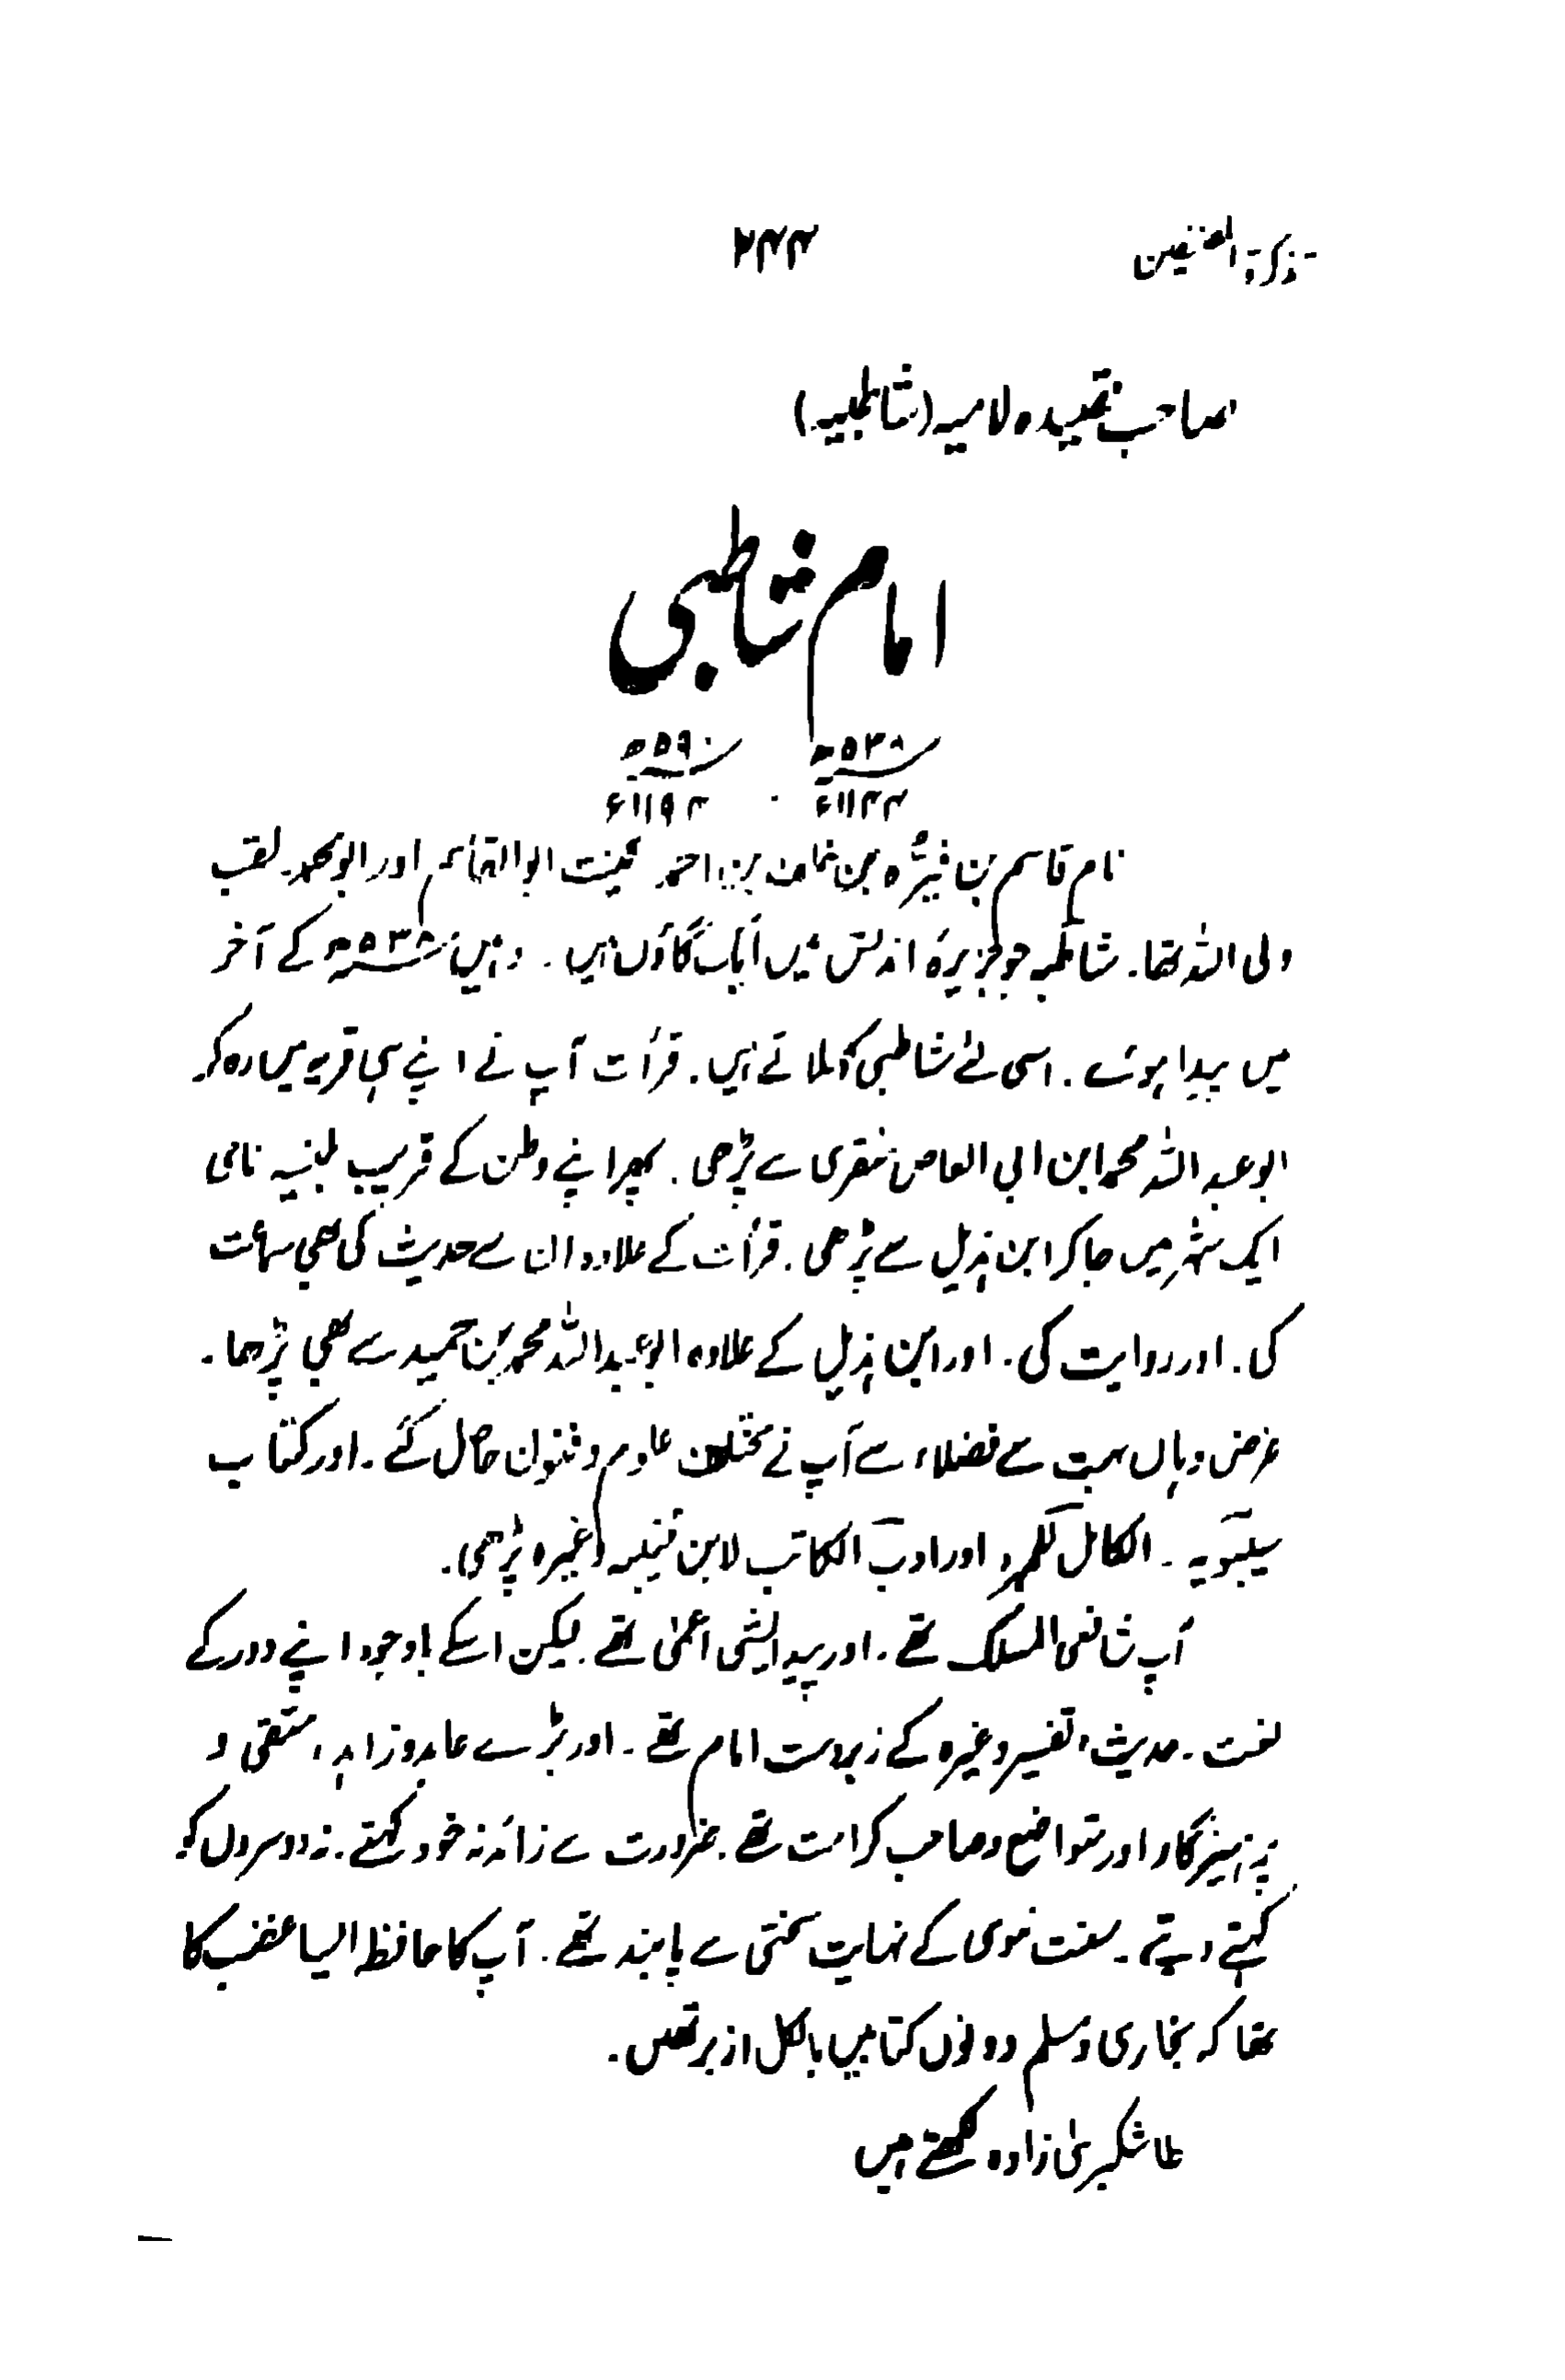 تذکرۃ المصنفین ۲۴۴
صاحب قصیدہ لامیہ (شاطبیہ)
امام شاطبی
۵۳۸ھ ۵۹۰ھ
۱۱۴۴ء . ۱۱۹۴ء
نام قاسم بن فیرُّہ بن خلف بن احمد کنیت ابوالقاسم اور ابومحمد لقب
ولی اللہ تھا۔ شاطبہ جو جزیرۂ اندلس میں ایک گاؤں ہیں۔ وہیں ۵۳۸ھ کے آخر
میں پیدا ہوئے۔ اسی لئے شاطبی کہلاتے ہیں۔ قرأت آپ نے اپنے ہی قریہ میں رہ کر
ابوعبداللہ محمد ابن ابی العاص نفری سے پڑھی۔ پھر اپنے وطن کے قریب بلنسیہ نامی
ایک شہر میں جا کر ابن ہذیل سے پڑھی۔ قرأت کے علاوہ ان سے حدیث کی بھی سماعت
کی۔ اور روایت کی۔ اور ابن ہذیل کے علاوہ ابوعبداللہ محمد بن حمید سے بھی پڑھا۔
غرض وہاں بہت سے فضلاء سے آپ نے مختلف علوم و فنون حاصل کئے۔ اور کتاب
سیبویہ ۔ الکامل للمبرد اور ادب الکاتب لابن قتیبہ وغیرہ پڑھی۔
آپ شافعی المسلک تھے۔ اور پیدائشی اعمیٰ تھے۔ لیکن اسکے باوجود اپنے دور کے
لغت ۔ حدیث، تفسیر وغیرہ کے زبردست امام تھے ۔ اور بڑے عابد و زاہد، متقی و
پرہیزگار اور متواضع و صاحب کرامت تھے۔ ضرورت سے زائد نہ خود کہتے۔ نہ دوسروں کو
کہنے دیتے۔ سنت نبوی کے نہایت سختی سے پابند تھے۔ آپ کا حافظہ ایسا غضب کا
تھا کہ بخاری و مسلم دونوں کتابیں بالکل ازبر تھیں۔
طاشکبریٰ زادہ لکھتے ہیں